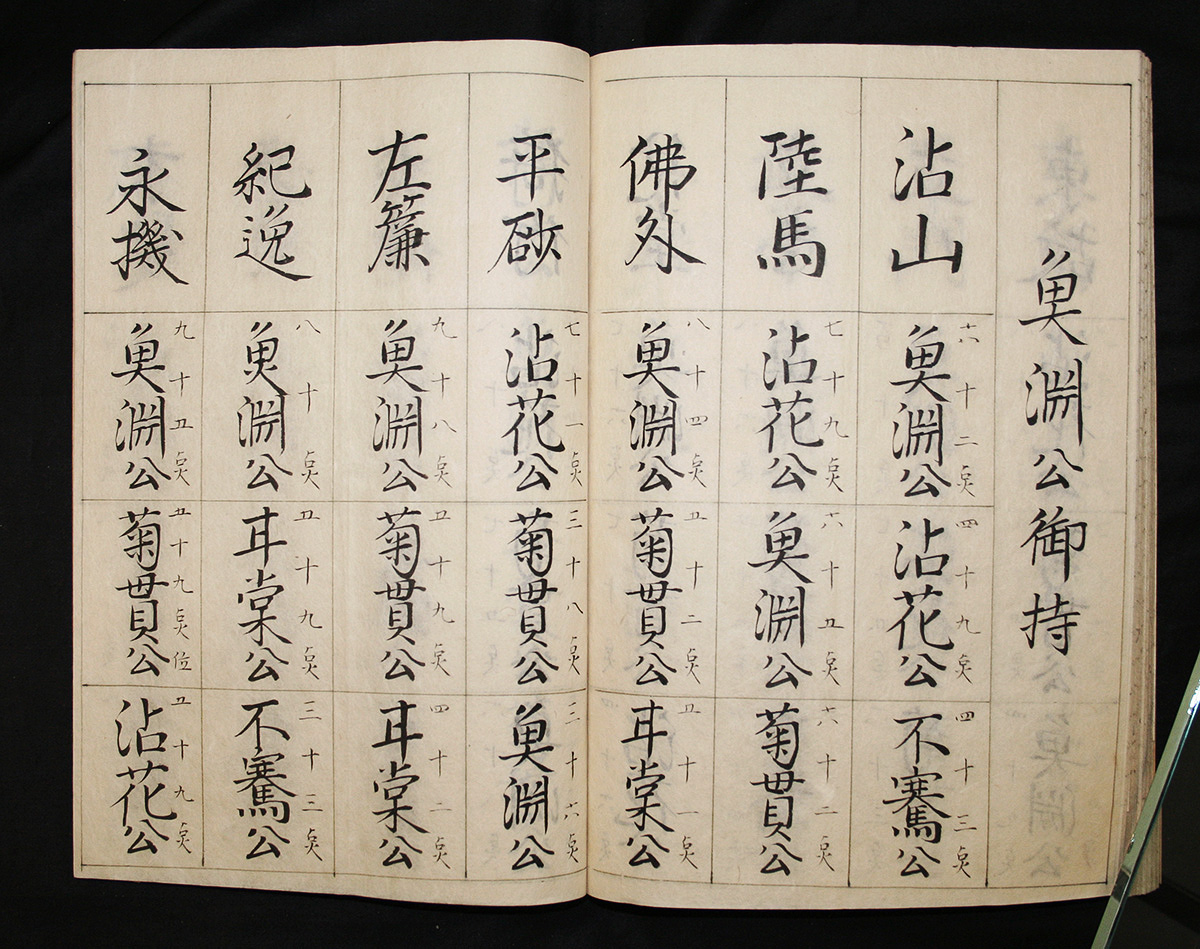 魚淵公御持
沾山
六十二点
魚淵公
四十九点
沾花公
四十三点
不騫公
陸馬
七十九点
沾花公
六十五点
魚淵公
六十二点
菊貫公
佛外
八十四点
魚淵公
五十二点
菊貫公
五十一点
耳棠公
平砂
七十一点
沾花公
三十八点
菊貫公
三十六点
魚淵公
左簾
九十八点
魚淵公
五十九点
菊貫公
四十二点
耳棠公
紀逸
八十点
魚淵公
五十九点
耳棠公
三十三点
不騫公
永機
九十五点
魚淵公
五十九点位
菊貫公
五十九点
沾花公